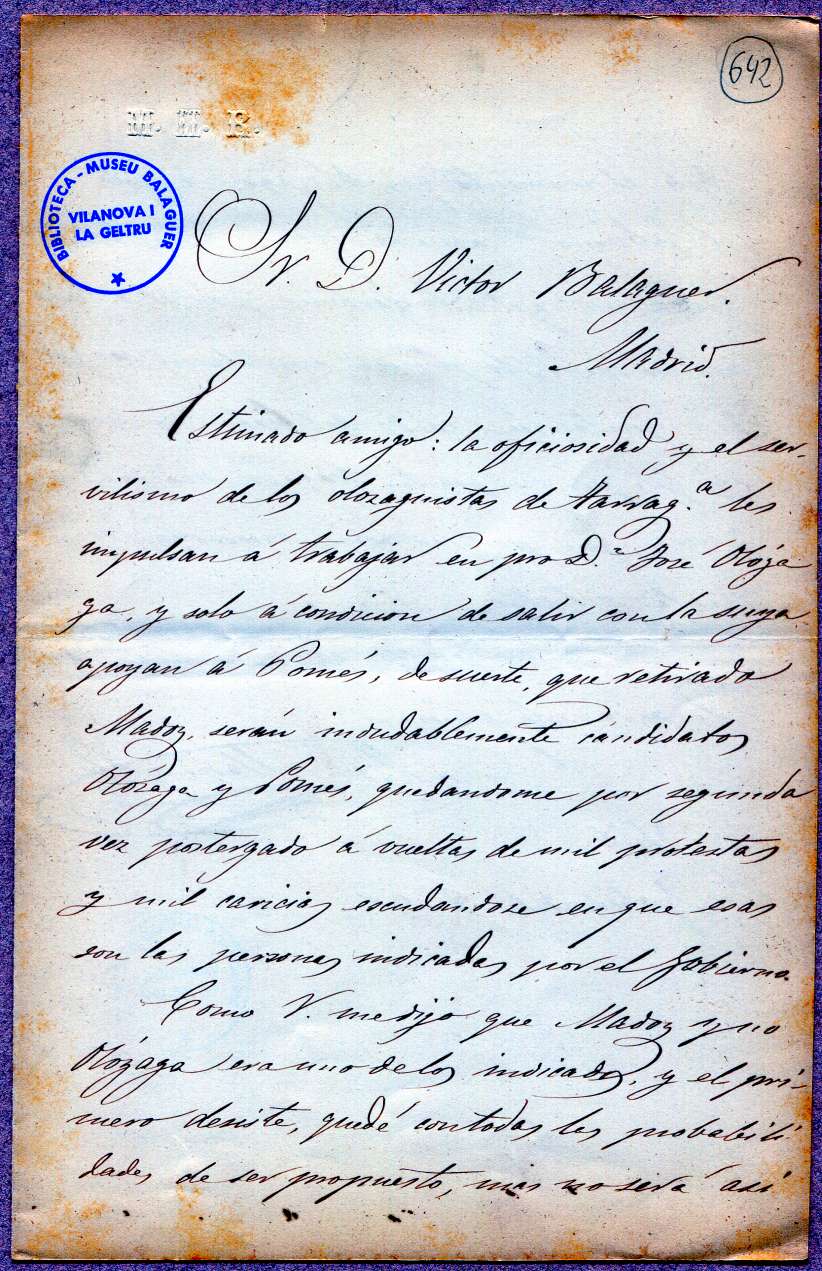 642
M. H. R.
BIBLIOTECA - MUSEU BALAGUER
VILANOVA I
LA GELTRU
Sr. D. Victor Balaguer.
Madrid.
Estimado amigo: la oficiosidad y el ser-
vilismo de los olozaguistas de Tarrag.ª les
impulsan á trabajar en pro D.n José Olóza
ga, y solo á condicion de salir con la suya
apoyan á Pomés, de suerte, que retirado
Madoz, serán indudablemente candidatos
Olózaga y Pomés, quedandome por segunda
vez postergado á vueltas de mil protestas
y mil caricias escudandose en que esas
son las personas indicadas por el Gobierno.
Como V. me dijo que Madoz y no
Olózaga era uno de los indicados, y el pri-
mero desiste, quedé con todas las probabili
dades de ser propuesto, mas no será así